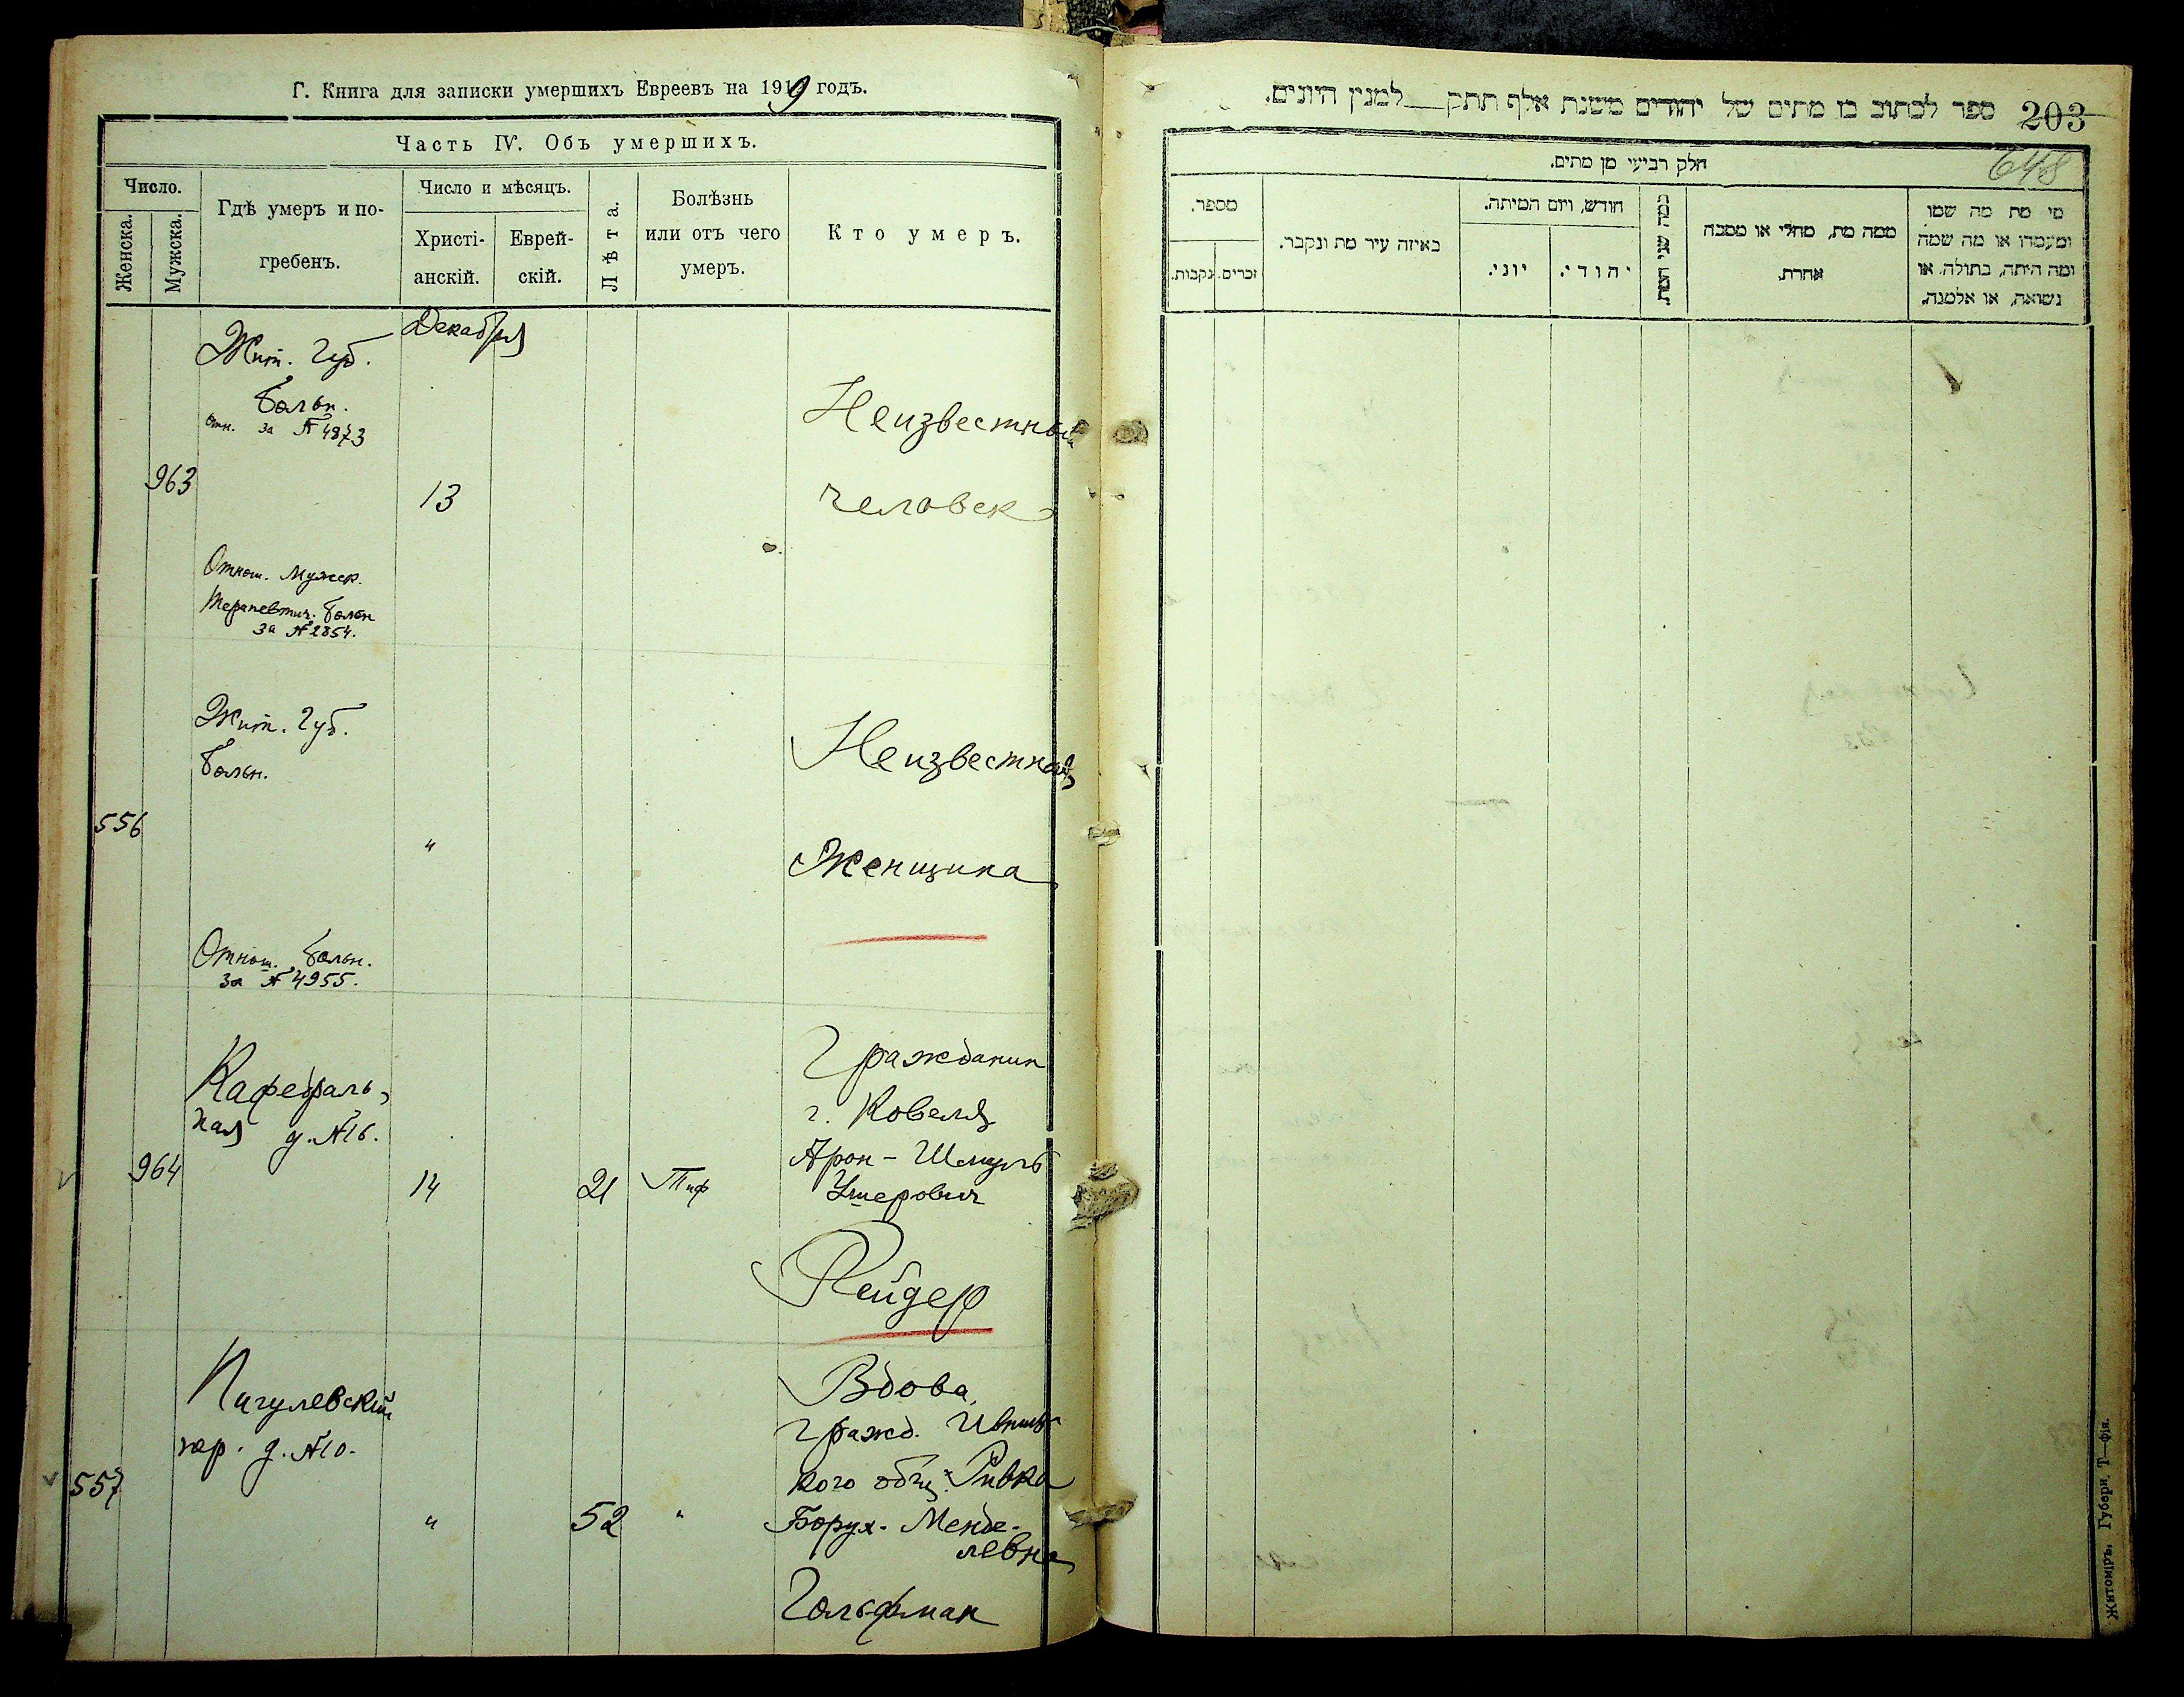 Г. Книга для записки умершихъ Евреевъ на 1919 годъ.
Часть IV. Объ умершихъ.
Число.
Женска.
Мужска.
Гдѣ умеръ и по-
гребенъ.
Число и мѣсяцъ.
Христі-
анскій.
Еврей-
скій.
Лѣта.
Болѣзнь
или отъ чего
умеръ.
Кто умеръ.
Декабря
Жит. Губ.
Больн.
отн. за № 4873
963
13
Неизвестный
человек
Отнош. Мужск.
Терапевтич. больн
за № 2854.
Жит. Губ.
Больн.
556
"
Неизвестная
Женщина
Отнош. больн.
за № 4955.
Кафедраль-
ная д. №16.
964
14
21
Тиф
Гражданин
г. Ковеля
Арон - Шмуль
Ушерович
Рейдер
Пигулевский
пер. д. №10.
557
"
52
"
Вдова,
гражд.
кого общ. Ривка
Борух-Менде-
левна
Гольдман
203
ספר לכתוב בו מתים של יהודים משנת אלף תתק למנין היונים.
648
חלק רביעי מן מתים.
מספר.
נקבות.
זכרים.
באיזה עיר מת ונקבר.
חודש, ויום המיתה.
יוני.
יהודי.
כמה שני המת.
ממה מת, מחלי או מסבה
אחרת.
מי מת מה שמו
ומעמדו או מה שמה
ומה היתה, בתולה, או
נשואה, או אלמנה.
Житоміръ, Губерн. Т—фія.